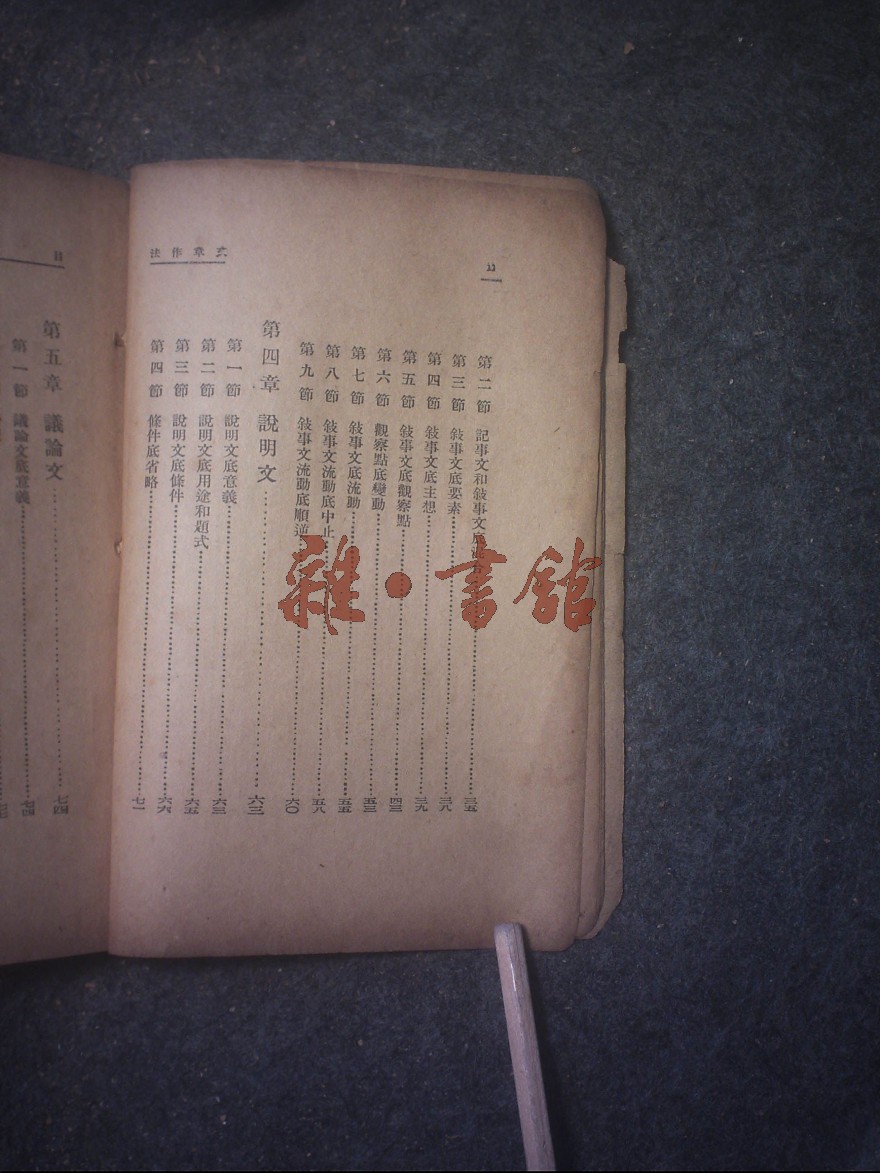 文章作法
第二節 記事文和敍事文底混合 三五
第三節 敍事文底要素 三八
第四節 敍事文底主想 三九
第五節 敍事文底觀察點 四三
第六節 觀察點底變動 五三
第七節 敍事文底流動 五五
第八節 敍事文流動底中止 五八
第九節 敍事文流動底順逆 六〇
第四章 說明文 六三
第一節 說明文底意義 六三
第二節 說明文底用途和題式 六五
第三節 說明文底條件 六六
第四節 條件底省略 七一
第五章 議論文 七四
第一節 議論文底意義 七四
雜·書館